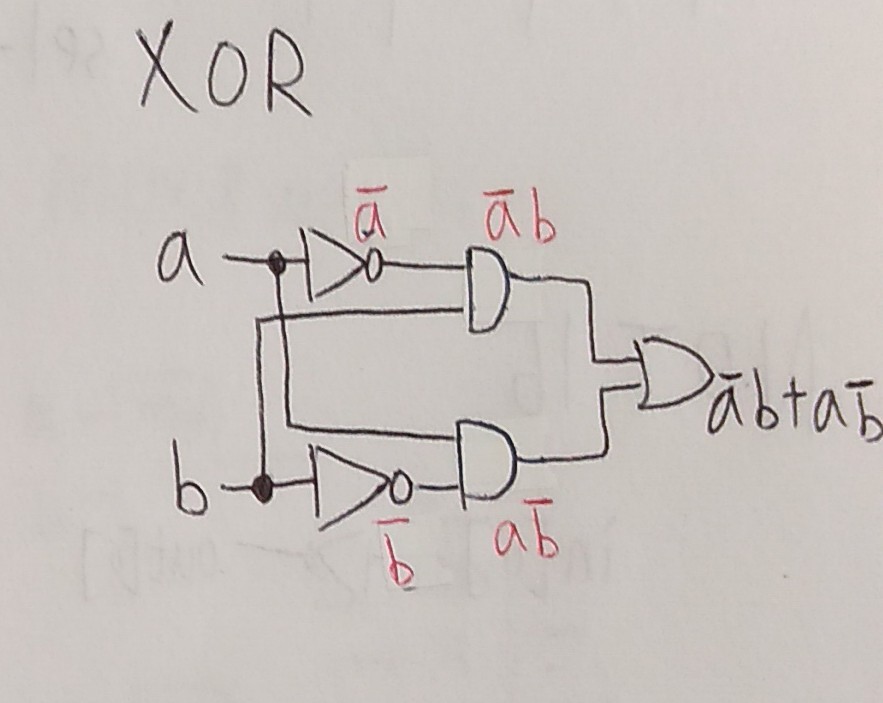 XOR
a̅ a̅b
a
a̅b+ab̅
b
b̅ ab̅